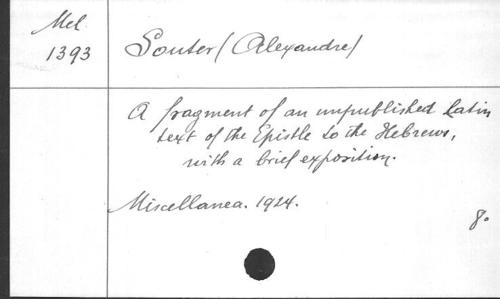 Mel.
1393
Souter (Alexandre)
A fragment of an unpublished Latin
text of the Epistle to the Hebrews,
with a brief exposition.
Miscellanea. 1924.
8.